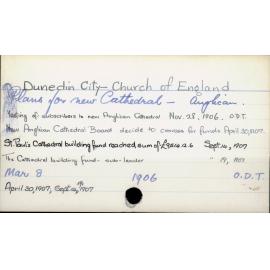 Dunedin City - Church of England
Plans for new Cathedral - Anglican.
Meeting of subscribers to new Anglican Cathedral Nov. 28, 1906. O.D.T.
New Anglican Cathedral Board decide to canvass for funds April 30, 1907.
St. Paul's Cathedral building fund reached sum of Sept. 14, 1907
The Cathedral building fund - sub-leader " 19, 1907
Mar 8 1906 O.D.T.
April 30, 1907, Sept 1907